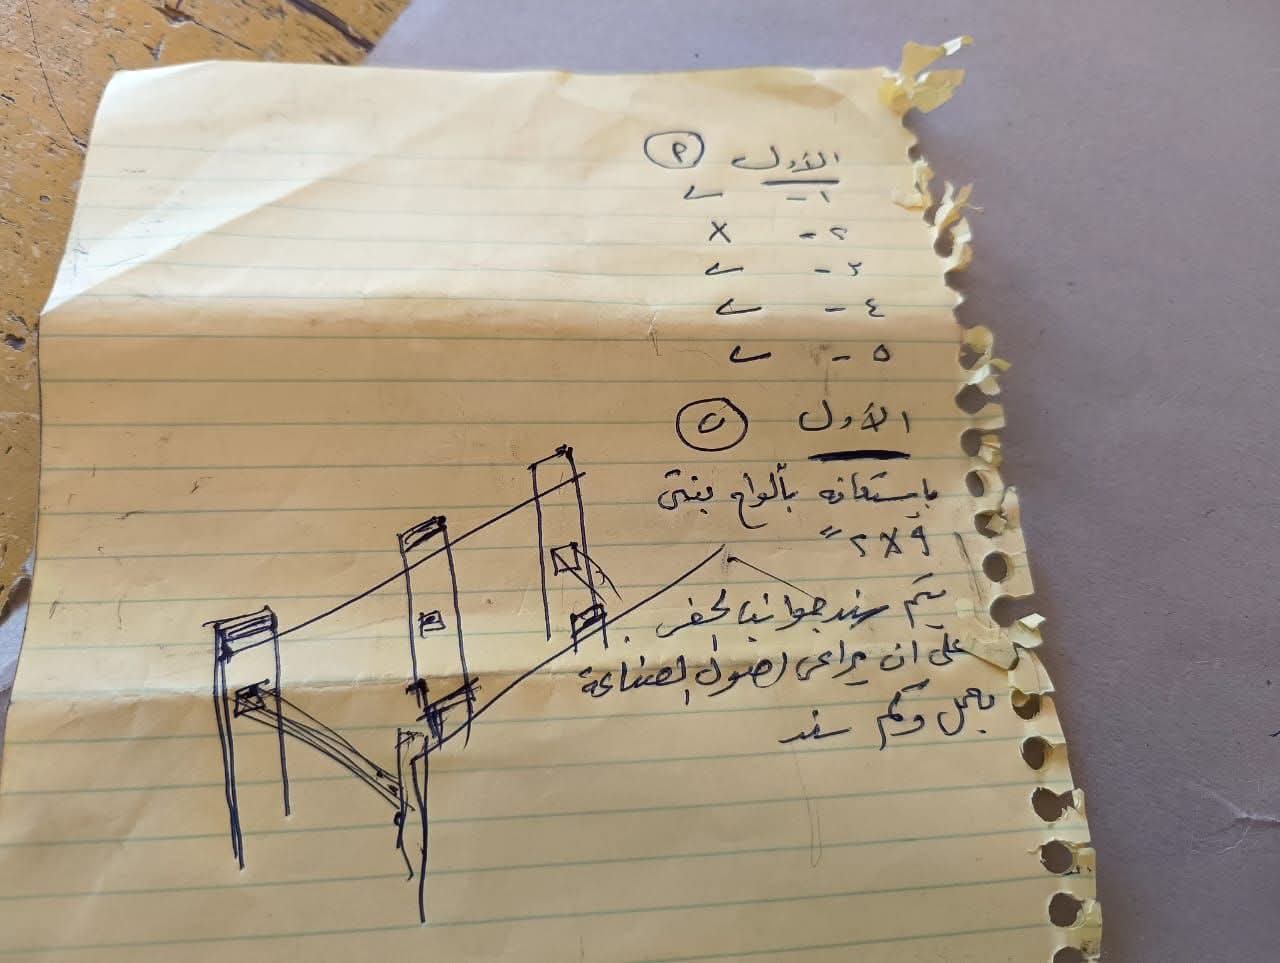 الأول (٢)
١- ✓
٢- X
٣- ✓
٤- ✓
٥- ✓
الأول (ب)
باستعانه بألواح بنتى
٩X٢"
يتم سند جوانب الحفر .
على ان يراعى اصول الصناعة
بعمل وكم سند